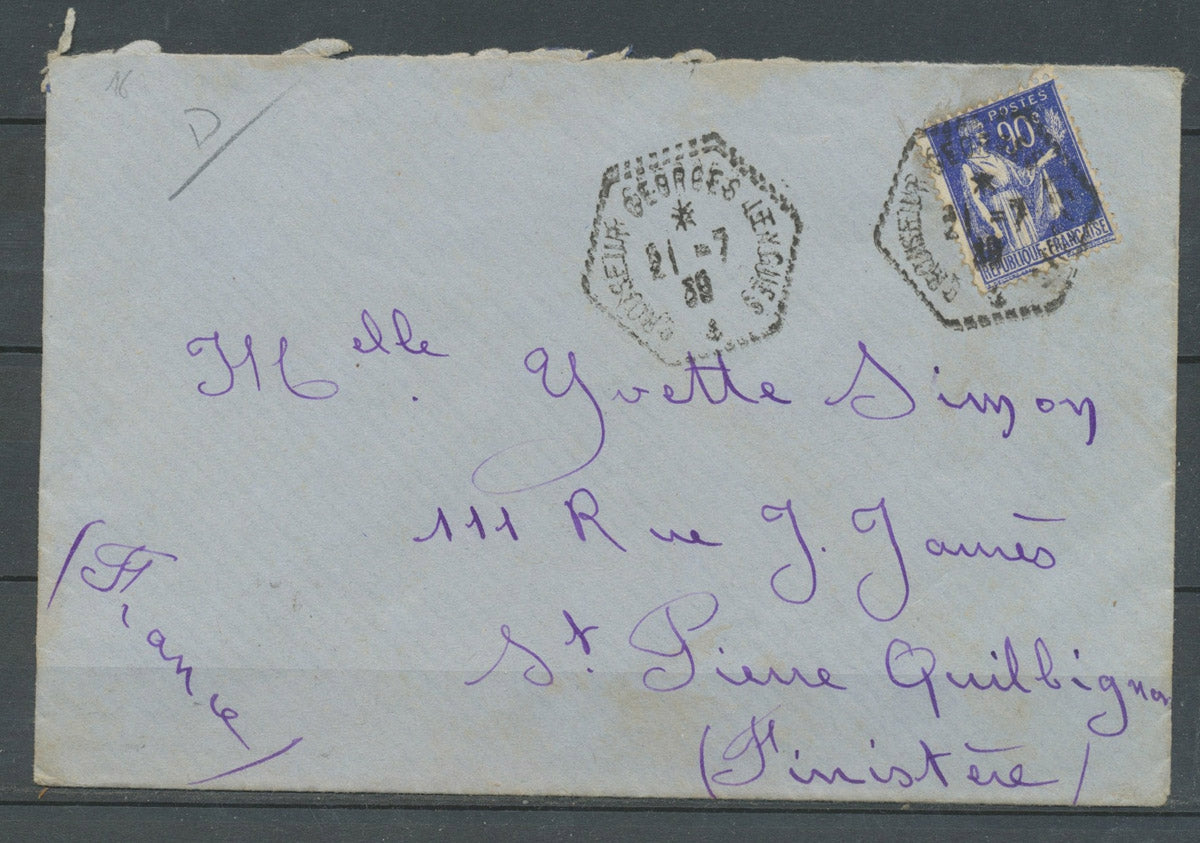 16
D
CROISEUR GEORGES LEYGUES
*
21 - 7
39
POSTES
90c
RÉPUBLIQUE FRANÇAISE
CROISEUR GEORGES
*
21 - 7
39
Melle. Yvette Simon
111 Rue J. Jaurès
St. Pierre Quilbignon
(Finistère)
(France)